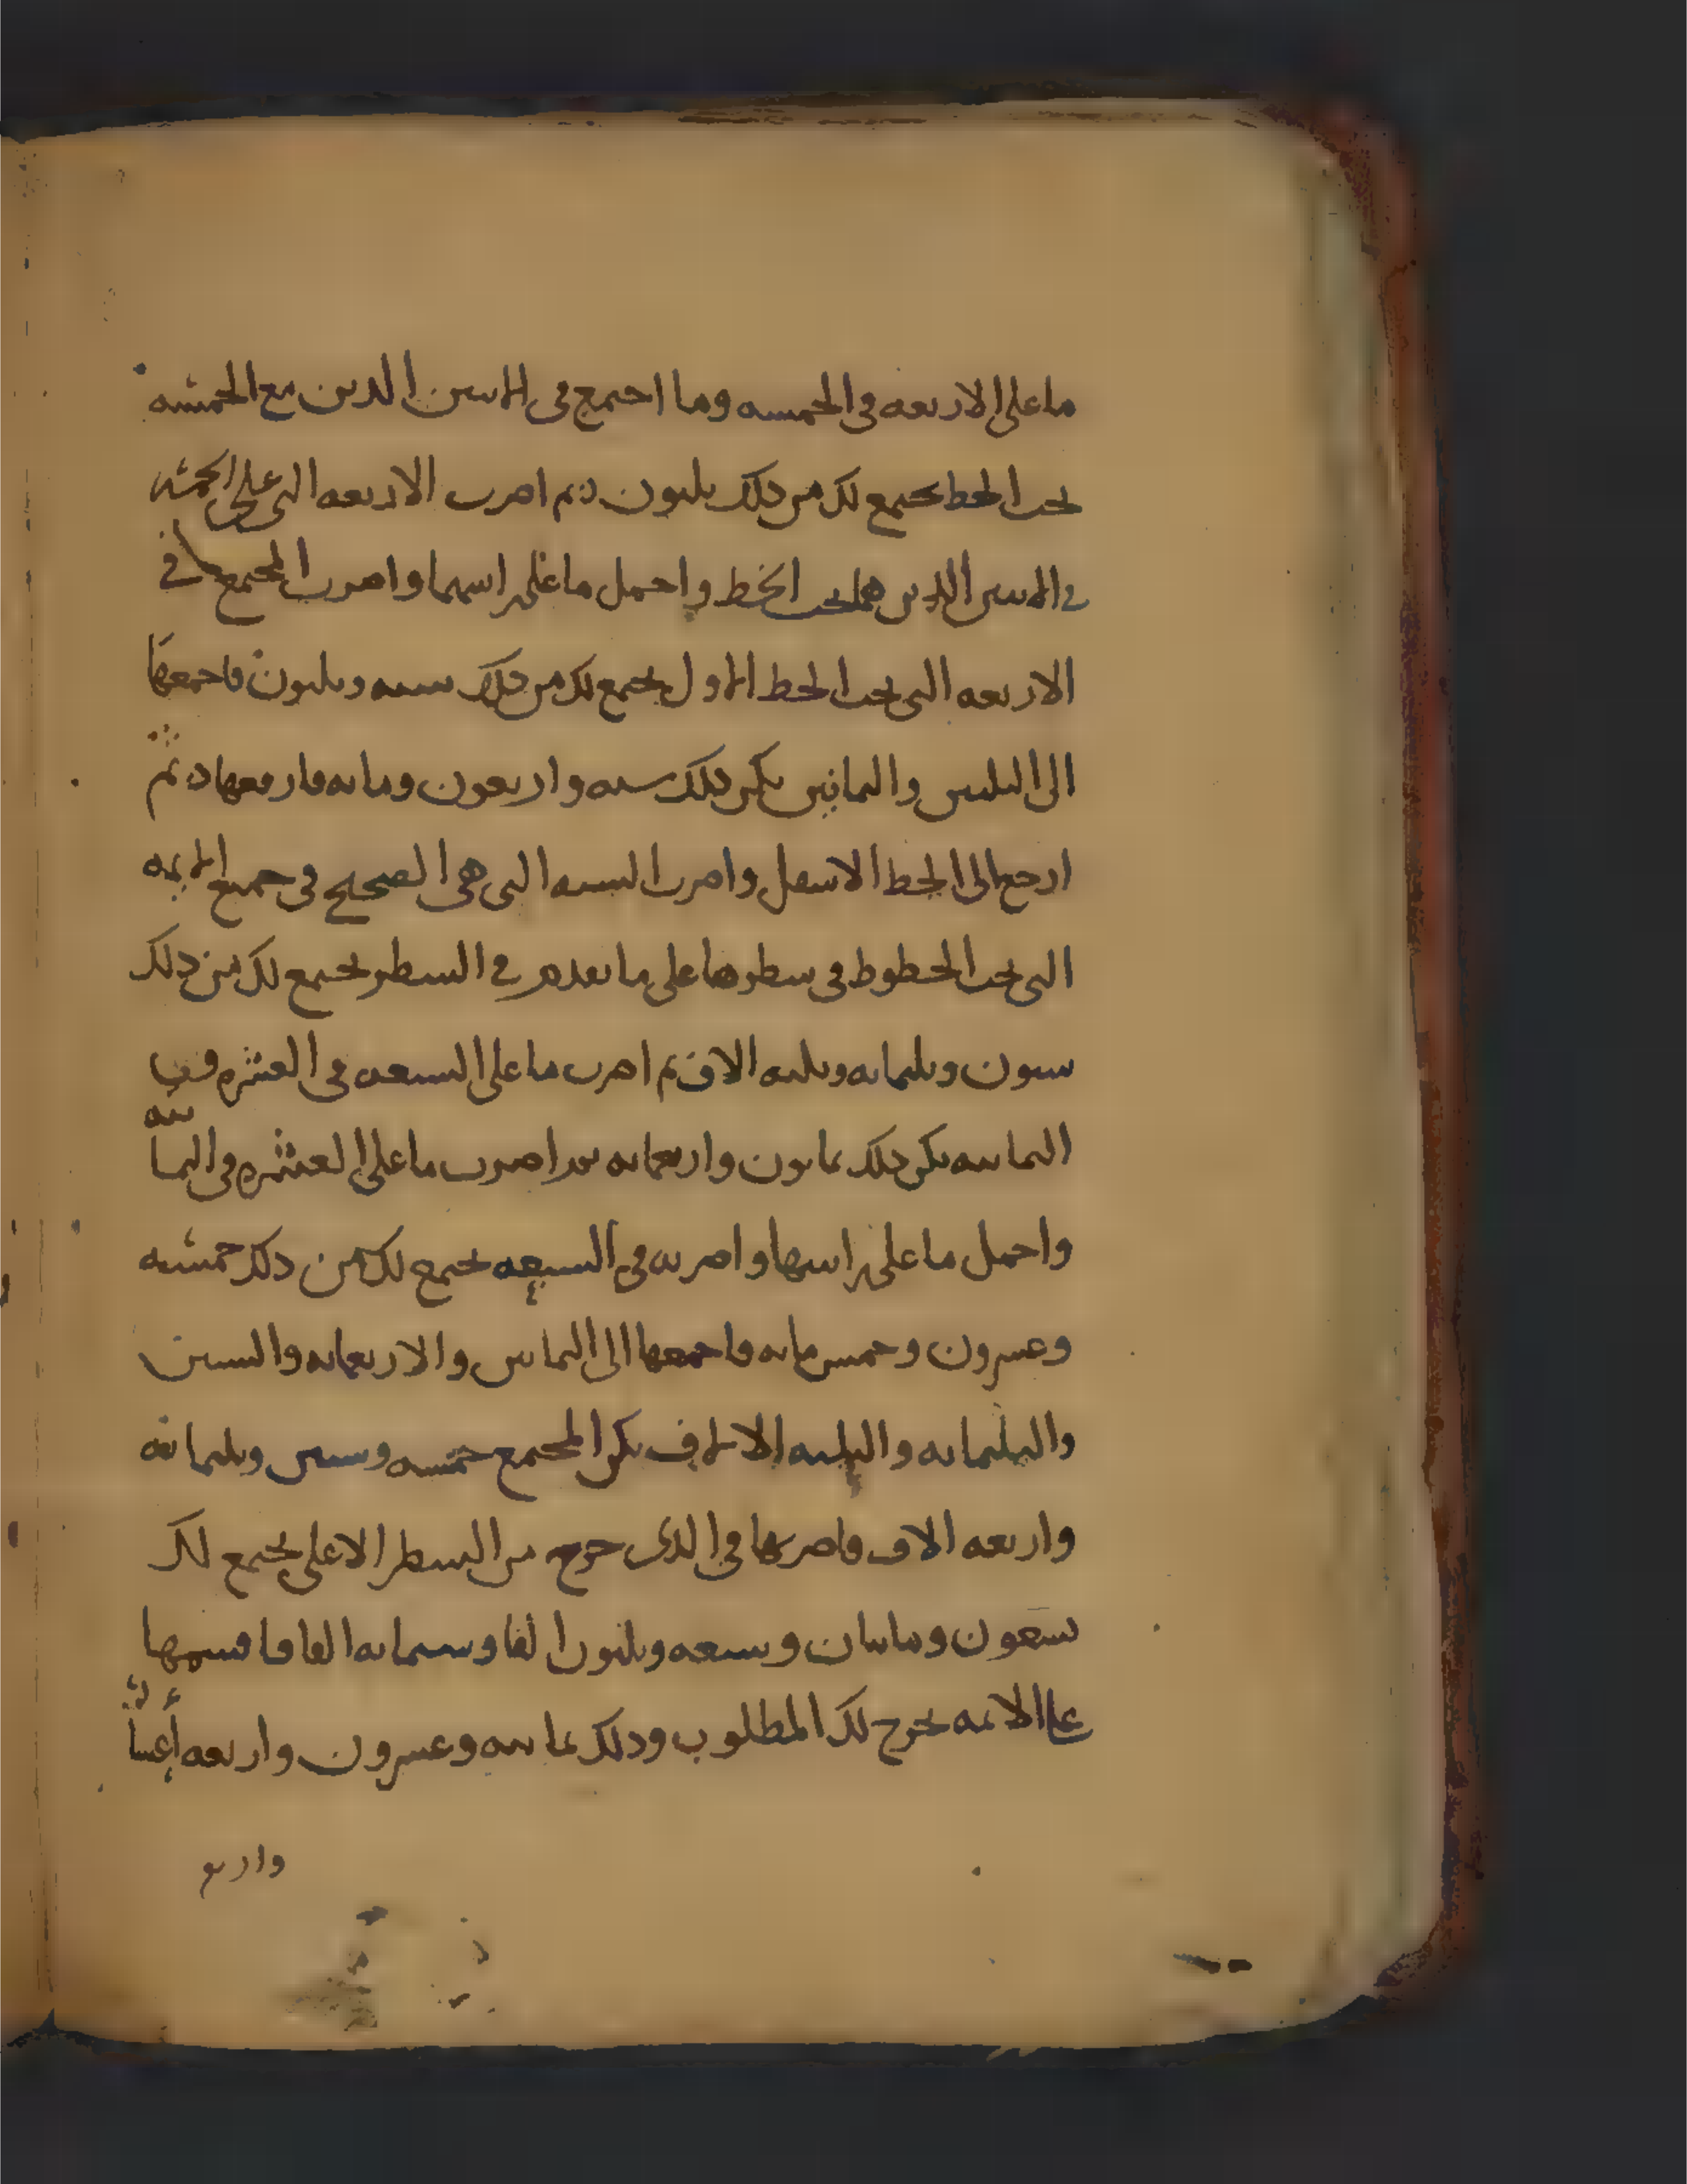 ما على الاربعه في الخمسه وما اجتمع في الاثنين الذين مع الخمسه
تحت الخط يجتمع لك من ذلك ثلثون ثم اضرب الاربعه التي على الخمسه
في الاثنين اللذين هما تحت الخط واحمل ما على راسهما واضرب المجتمع في
الاربعه التي تحت الخط الاول يجتمع لك من ذلك سته وثلثون فاجمعها
الى الثلثين والثمانين يكن ذلك سته واربعون ومايه فارفعها ثم
ارجع الى الخط الاسفل واضرب السته التي هي الصحيح في جميع الايمه
التي تحت الخطوط في سطرها على ما تقدم في السطر يجتمع لك من ذلك
ستون وثلثمايه وثلثه الاف ثم اضرب ما على التسعه في العشره وفي
الثمانيه يكن ذلك ثمانون واربعمايه بعد اضرب ما على العشره في الثمانيه
واحمل ما على راسها واضربه في السبعه يجتمع لك من ذلك خمسه
وعشرون وخمس مايه فاجمعها الى الثمانين والاربعمايه والستين
والثلثمايه والثلثه الالاف يكن المجتمع خمسه وستين وثلثمايه
واربعه الاف فاضربها في الذي خرج من السطر الاعلى يجتمع لك
تسعون ومايتان وسبعه وثلثون الفا وستمايه الفا فاقسمها
على الايمه يخرج لك المطلوب وذلك ثمانيه وعشرون واربعه أعشار
واربع